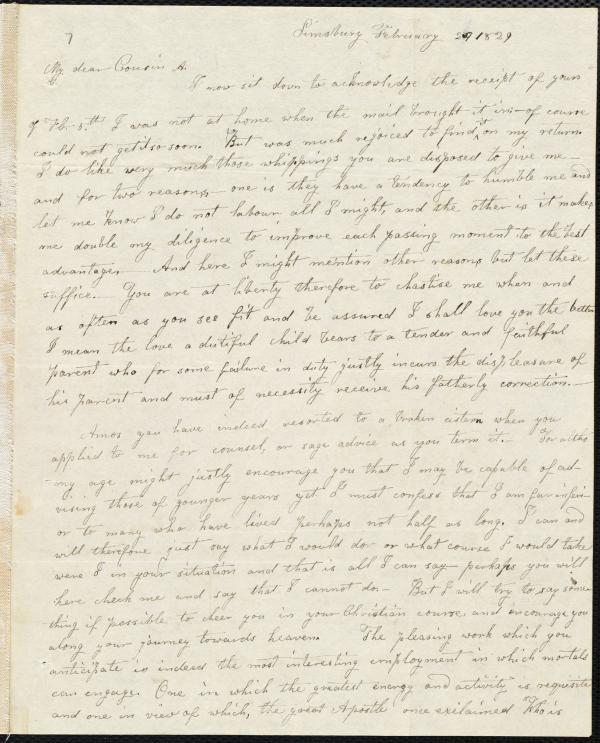 7
Simsbury February 27 1829
My dear Cousin A.
I now sit down to acknowledge the receipt of yours
of Feb. 5.th I was not at home when the mail brought it in—of course
could not get it so soon. But was much rejoiced to find it on my return.
I do like very much those whippings you are disposed to give me—
and for two reasons—one is they have a tendency to humble me and
let me know I do not labour all I might, and the other is it makes
me double my diligence to improve each passing moment to the best
advantage. And here I might mention other reasons but let these
suffice.— You are at liberty therefore to chastise me when and
as often as you see fit and be assured I shall love you the better
I mean the love a dutiful child bears to a tender and faithful
parent who for some failure in duty justly incurs the displeasure of
his parent and must of necessity receive his fatherly correction.—
Amos you have indeed resorted to a broken cistern when you
applied to me for counsel, or sage advice as you term it.— For altho
my age might justly encourage you that I may be capable of ad-
vising those of younger years yet I must confess that I am far infer-
or to many who have lived perhaps not half as long. I can and
will therefore just say what I would do or what course I would take
were I in your situation and that is all I can say—perhaps you will
here check me and say that I cannot do.— But I will try to say some-
thing if possible to cheer you in your Christian course, and encourage you
along your journey towards heaven. The pleasing work which you
anticipate is indeed the most interesting employment in which mortals
can engage. One in which the greatest energy and activity is requisite
and one in view of which, the great Apostle once exclaimed "Who is